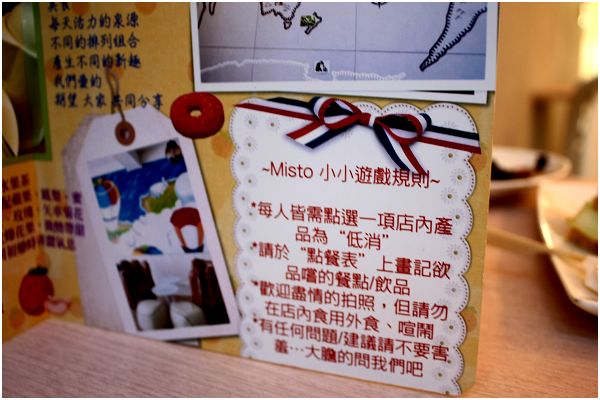 每天活力的泉源
不同的排列組合
產生不同的新趣
我們蠻的
期望 大家 共同分享
~Misto 小小遊戲規則~
*每人皆需點選一項店內產
品為“低消”
*請於“點餐表”上畫記欲
品嚐的餐點/飲品
*歡迎盡情的拍照，但請勿
在店內食用外食、喧鬧
*有任何問題/建議請不要害
羞…大膽的問我們吧